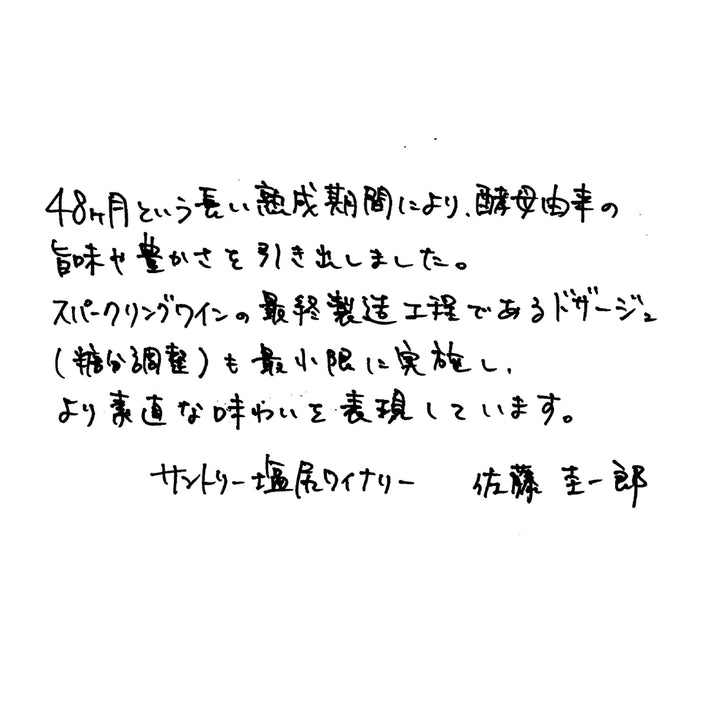 48ヶ月という長い熟成期間により、酵母由来の
旨味や豊かさを引き出しました。
スパークリングワインの最終製造工程であるドザージュ
(糖分調整)も最小限に実施し、
より素直な味わいを表現しています。
サントリー塩尻ワイナリー 佐藤 圭一郎